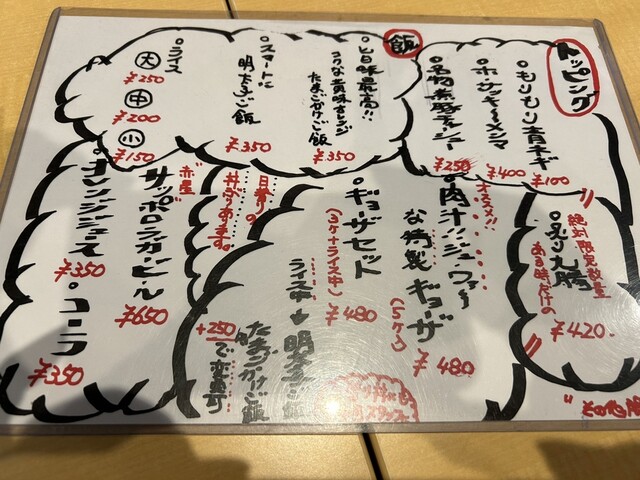 トッピング
もりもり青ネギ
¥100
ホ・サッキ〜メンマ
¥400
名物煮豚チャーシュー
¥250
飯
旨味最高!!
コクな黄味オレンジ
たまごかけご飯
¥350
スマートに
明太子ご飯
¥350
ライス
大
¥250
中
¥200
小
¥150
絶対限定数量
ある時だけの
炙り丸腸
¥420
オススメ!!
肉汁!!ジュウシー
な特製ギョーザ
(5ヶ入)
¥480
ギョーザセット
(3ヶ+ライス中)
¥480
ライス中→明太子ご飯
たまごかけご飯
+250で変更可
日替りの
丼ぶりあります。
赤星
サッポロラガービール
¥650
オレンジジュース
¥350
コーラ
¥350